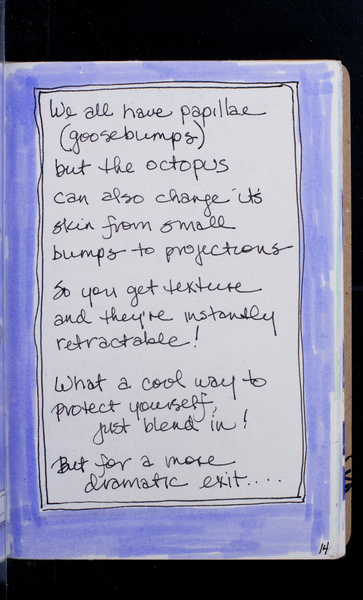 We all have papillae
(goosebumps)
but the octopus
can also change it's
skin from small
bumps to projections
So you get texture
and they're instantly
retractable!
What a cool way to
protect yourself,
just blend in!
But for a more
dramatic exit....
14